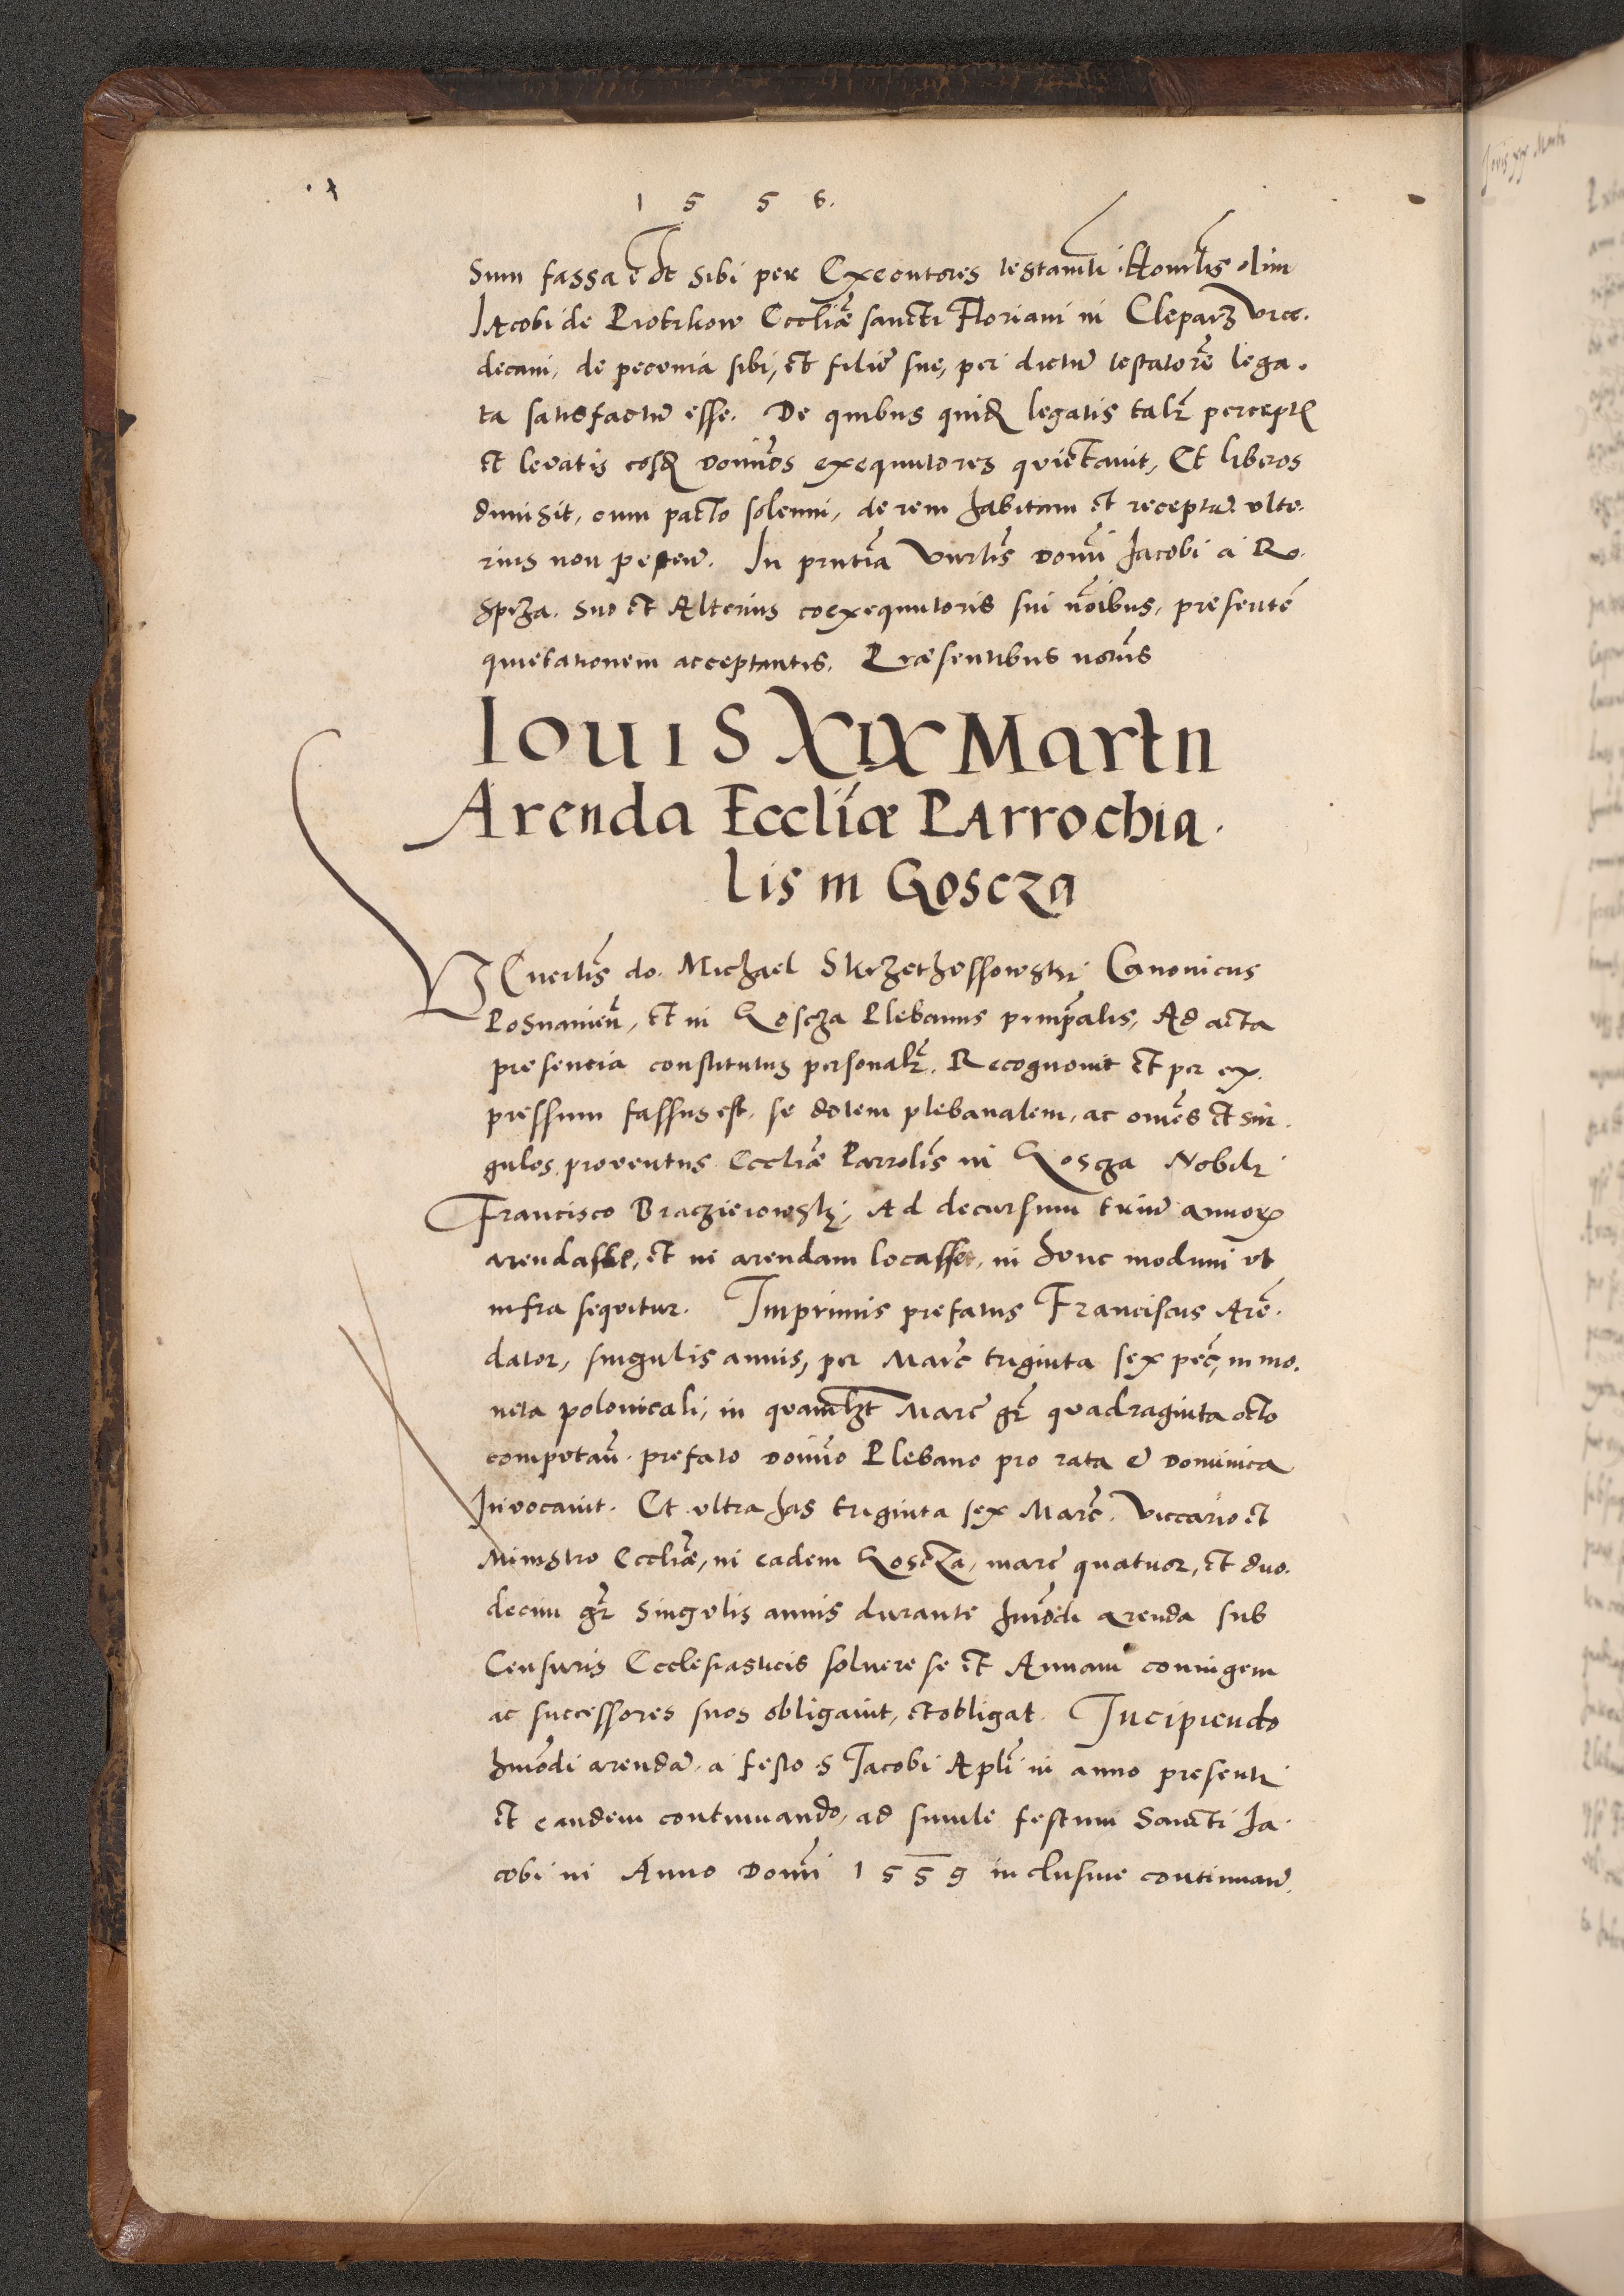 1 5 5 6.
sum fassa e͂ Et sibi per Executores testam͂ti Hono͂rlis olim
Jacobi de Piotrkow Eccli͂æ sancti Floriani in Cleparz Vice.
decani, de pecunia sibi, et filie sue, per dictu͂ testatore͂ lega.
ta satisfactu͂ esse. De quibus quid͂ legatis talr͂ percept͂
et levatis eosd͂ domi͂os exequutores quietauit, Et liberos
dimisit, cum pacto solenni, de rem habitam et receptu͂ ulte.
rius non petent. In pr͂ntia Vnrlis͂ domi͂ Jacobi a Ro.
sprza. suo et Alterius coexequutoris sui no͂ibus, presente͂
quietationem acceptantis. Præsentibus notiis
Iouis XIX Martii
Arenda Eccli͂æ Parrochia.
lis in Goscza
VEnerlis͂ do. Michael Skrzethussowski Canonicus
Posnanien͂, et in Goscza Plebanus principalis, Ad acta
presentia constitutus personalr͂. Recognouit et per ex.
pressum fassus est, se dotem plebanalem, ac omes͂ et sin.
gulos, proventus Eccli͂æ Parrolis͂ in Goscza Nobili
Francisco Braczieiowski, Ad decursum triu͂ annor͂
arendasse, et in arendam locasse, in hunc modum ut
infra sequitur. Imprimis prefatus Franciscus Are͂.
dator, singulis annis, per Marc͂ triginta sex pec͂, in mo.
neta polonicali, in quamlzt͂ Marc͂ gr͂ quadraginta octo
computan͂. prefato domi͂no Plebano pro rata e͂ dominica
Invocauit. Et ultra has triginta sex Marc͂. Viccario et
Ministro Eccli͂æ, in eadem Goscza, marc͂ quatuor, et duo.
decim gr͂ singulis annis durante hmo͂di arenda sub
Censuris Ecclesiasticis soluere se et Annam coniugem
ac successores suos obligauit, et obligat. Incipiendo
hmo͂di arenda͂. a festo s Jacobi Apli͂ in anno presenti
et eandem continuando, ad simile festum Sancti Ja.
cobi in Anno domi͂ 1559 inclusiue continuan͂.